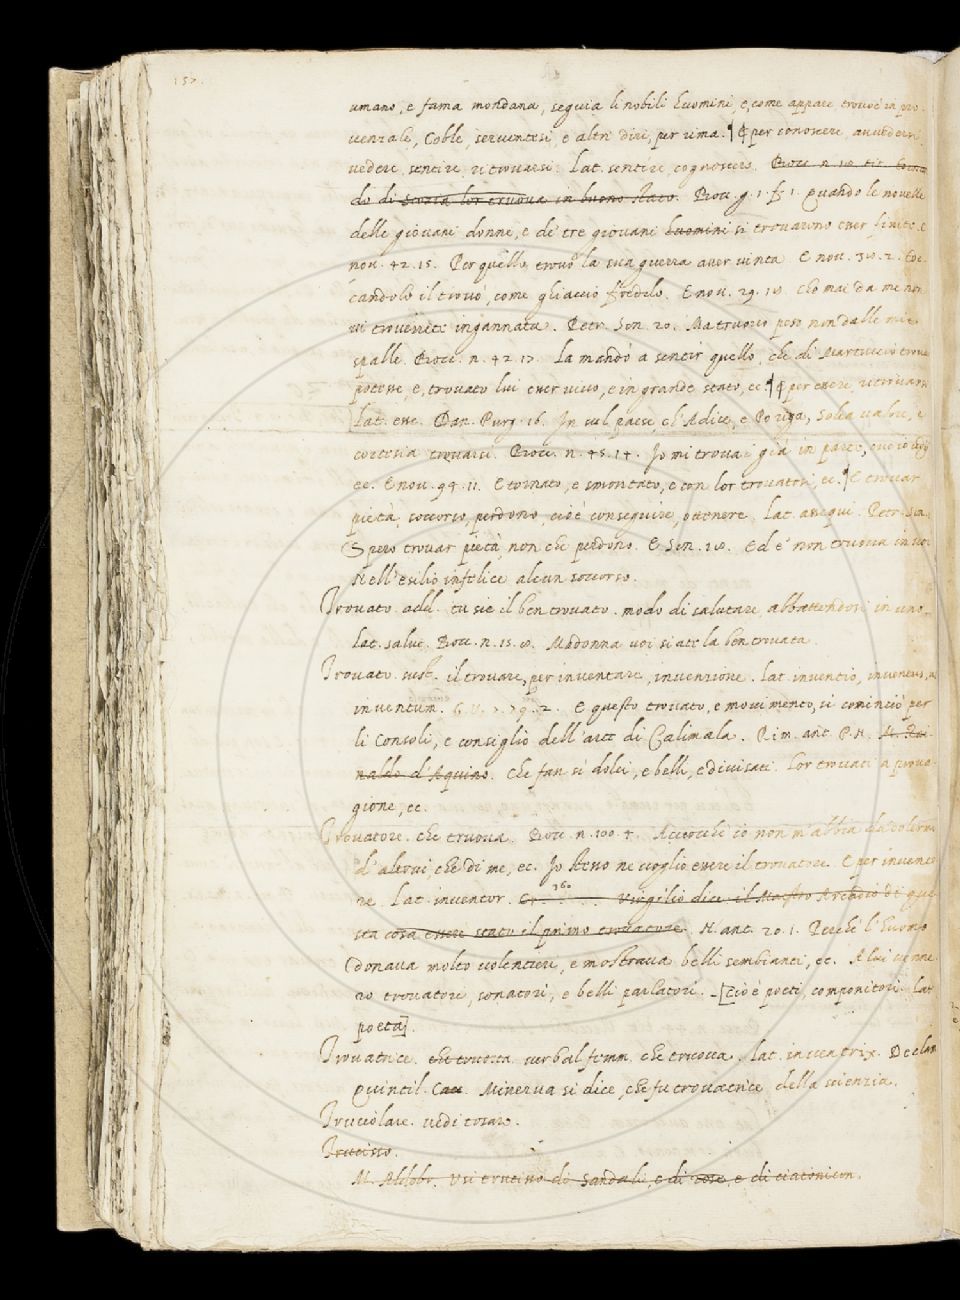 157.
umano, e fama mondana, seguia li nobili huomini, e, come appare trovoe in pro-
venzale, Coble, serventesi, e altri diri, per rima. ¶ E per conoscere, avvedersi,
vedere, sentire, ritrovarsi. Lat. sentire, cognoscere. Bocc. n.
do di lor truova in buono stato. Bocc. g. 1. f. 1. Quando le novelle
delle giovani donne, e de' tre giovani huomini si trovarono esser finite. E
nov. 42. 15. Per quello trovò la sua guerra aver vinta. E nov. 38. 2.
candolo il trovò, come ghiaccio freddo. E nov. 29. 18. Che mai da me non
vi troverete ingannata. Petr. Son. 20. Ma truovo peso non dalle mie
spalle. Bocc. n. 42. 17. La mandò a sentir quello, che di Martuccio trovar
potesse, e, trovato lui esser vivo, e in grande stato, ec. ¶ E per essere, ritrovarsi
Lat. esse. Dan. Purg. 16. In sul paese, ch'Adice, e Po riga, Solea valore, e
cortesia trovarsi. Bocc. n. 45. 14. Io mi trovai già in parte,
ec. E nov. 99. 11. E tornato, e smontato, e con lor trovatosi, ec. E trovar
pietà, soccorso, perdono, cioè conseguire, ottenere. Lat. assequi. Petr. Son.
Spero trovar pietà, non che perdono. E Son. 28. Ed e' non truova in voi
Nell'esilio infelice alcun soccorso.
Trovato. add. tu sie il ben trovato. modo di salutare abbattendosi in uno.
Lat. salve. Bocc. n. 15. 8. Madonna voi siate la ben trovata.
Trovato. sust. il trovare, per inventare, invenzione. Lat. inventio, inventus,
inventum. G. V. 7. 79. 2. E questo trovato, e movimento, si cominciò per
li Consoli, e consiglio dell'arte di Calimala. Rim. ant. P. N. M. Rai-
naldo d'Aquino. Che fan sì dolci, e belli, e divisati. Lor trovati a prova-
gione, ec.
Trovatore. che truova. Bocc. n. 100. 4. Acciocchè io non m'abbia da dolerm
d'altrui, che di me, ec. Io stesso ne voglio essere il trovatore. E per invento
re. Lat. inventor. 360 Virgilio dice il Maestro Archidio di que
sta cosa essere stato il primo trovatore. N. ant. 20. 1. Perchè l'huomo
donava molto volentieri, e mostrava belli sembianti, ec. A lui venne-
ro trovatori, sonatori, e belli parlatori. [Cioè poeti, componitori. Lat.
poeta].
Trovatrice. che truova. verbal femm. che truova. Lat. inventrix. Declam.
Quintil. C. Minerva si dice, che fu trovatrice della scienzia.
Truciolare. vedi tosare.
Trucisso.
M. Aldobr. Usi trucisso di Sandali, e di rose, e di